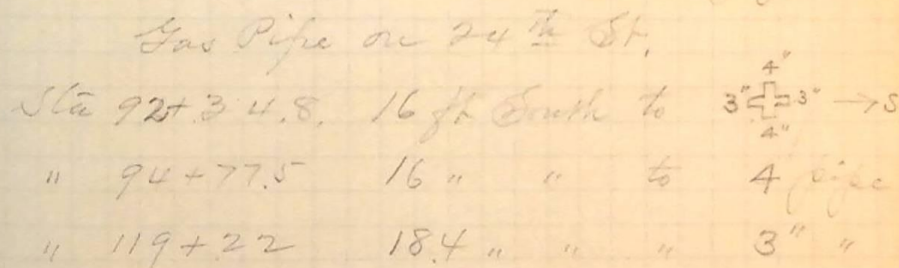 Gas Pipe on 24th St.
Sta 92+34.8. 16 ft South to 4" 3" 3" 4" → S
" 94+77.5 16 " " to 4 pipe
" 119+22 18.4 " " " 3" "